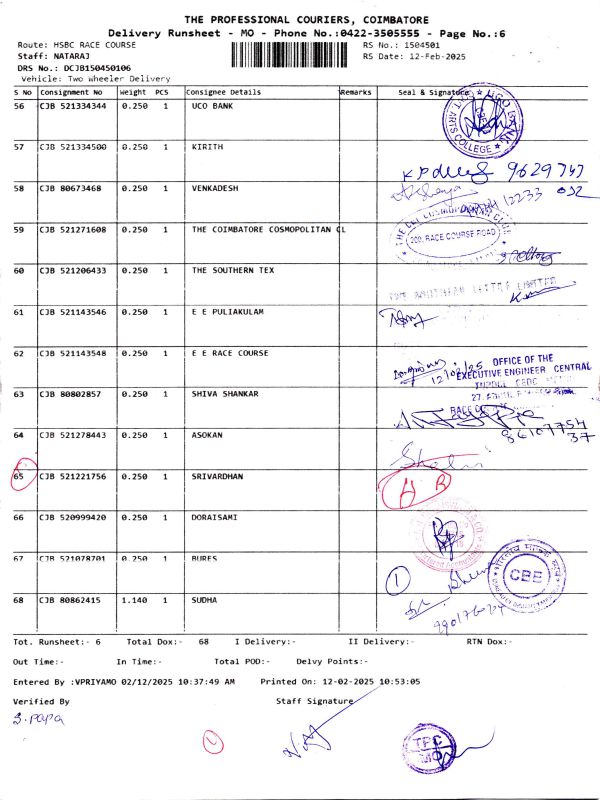 THE PROFESSIONAL COURIERS, COIMBATORE
Delivery Runsheet - MO - Phone No.:0422-3505555 - Page No.:6
Route: HSBC RACE COURSE
RS No.: 1504501
Staff: NATARAJ
RS Date: 12-Feb-2025
DRS No.: DCJB150450106
Vehicle: Two Wheeler Delivery
S No Consignment No Weight PCS Consignee Details Remarks Seal & Signature
56 CJB 521334344 0.250 1 UCO BANK
UCO BANK CBE ARTS COLLEGE
57 CJB 521334500 0.250 1 KIRITH
9629747
58 CJB 80673468 0.250 1 VENKADESH
12233 032
59 CJB 521271608 0.250 1 THE COIMBATORE COSMOPOLITAN CL
200, RACE COURSE ROAD
60 CJB 521206433 0.250 1 THE SOUTHERN TEX
LIMITED
61 CJB 521143546 0.250 1 E E PULIAKULAM
62 CJB 521143548 0.250 1 E E RACE COURSE
12/02/25 OFFICE OF THE
EXECUTIVE ENGINEER CENTRAL
63 CJB 80802857 0.250 1 SHIVA SHANKAR
RACE
86107754
37
64 CJB 521278443 0.250 1 ASOKAN
65 CJB 521221756 0.250 1 SRIVARDHAN
66 CJB 520999420 0.250 1 DORAISAMI
67 CJB 521078701 0.250 1 BURES
1
CBE
68 CJB 80862415 1.140 1 SUDHA
Tot. Runsheet:- 6 Total Dox:- 68 I Delivery:- II Delivery:- RTN Dox:-
Out Time:- In Time:- Total POD:- Delvy Points:-
Entered By :VPRIYAMO 02/12/2025 10:37:49 AM Printed On: 12-02-2025 10:53:05
Verified By Staff Signature
S. PAPA
1
TPC
MO